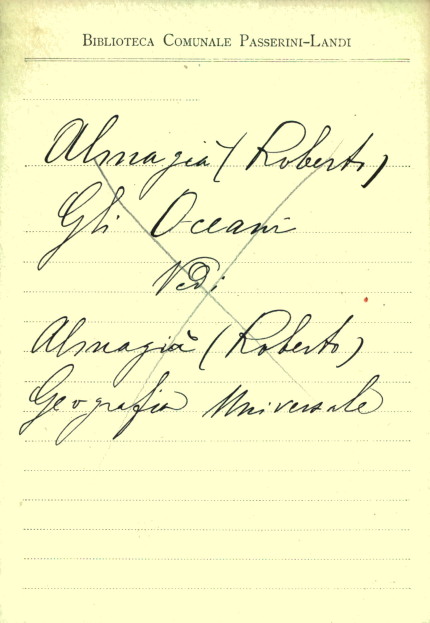 BIBLIOTECA COMUNALE PASSERINI-LANDI
Almagià (Roberto)
Gli Oceani
Vedi
Almagià (Roberto)
Geografia Universale